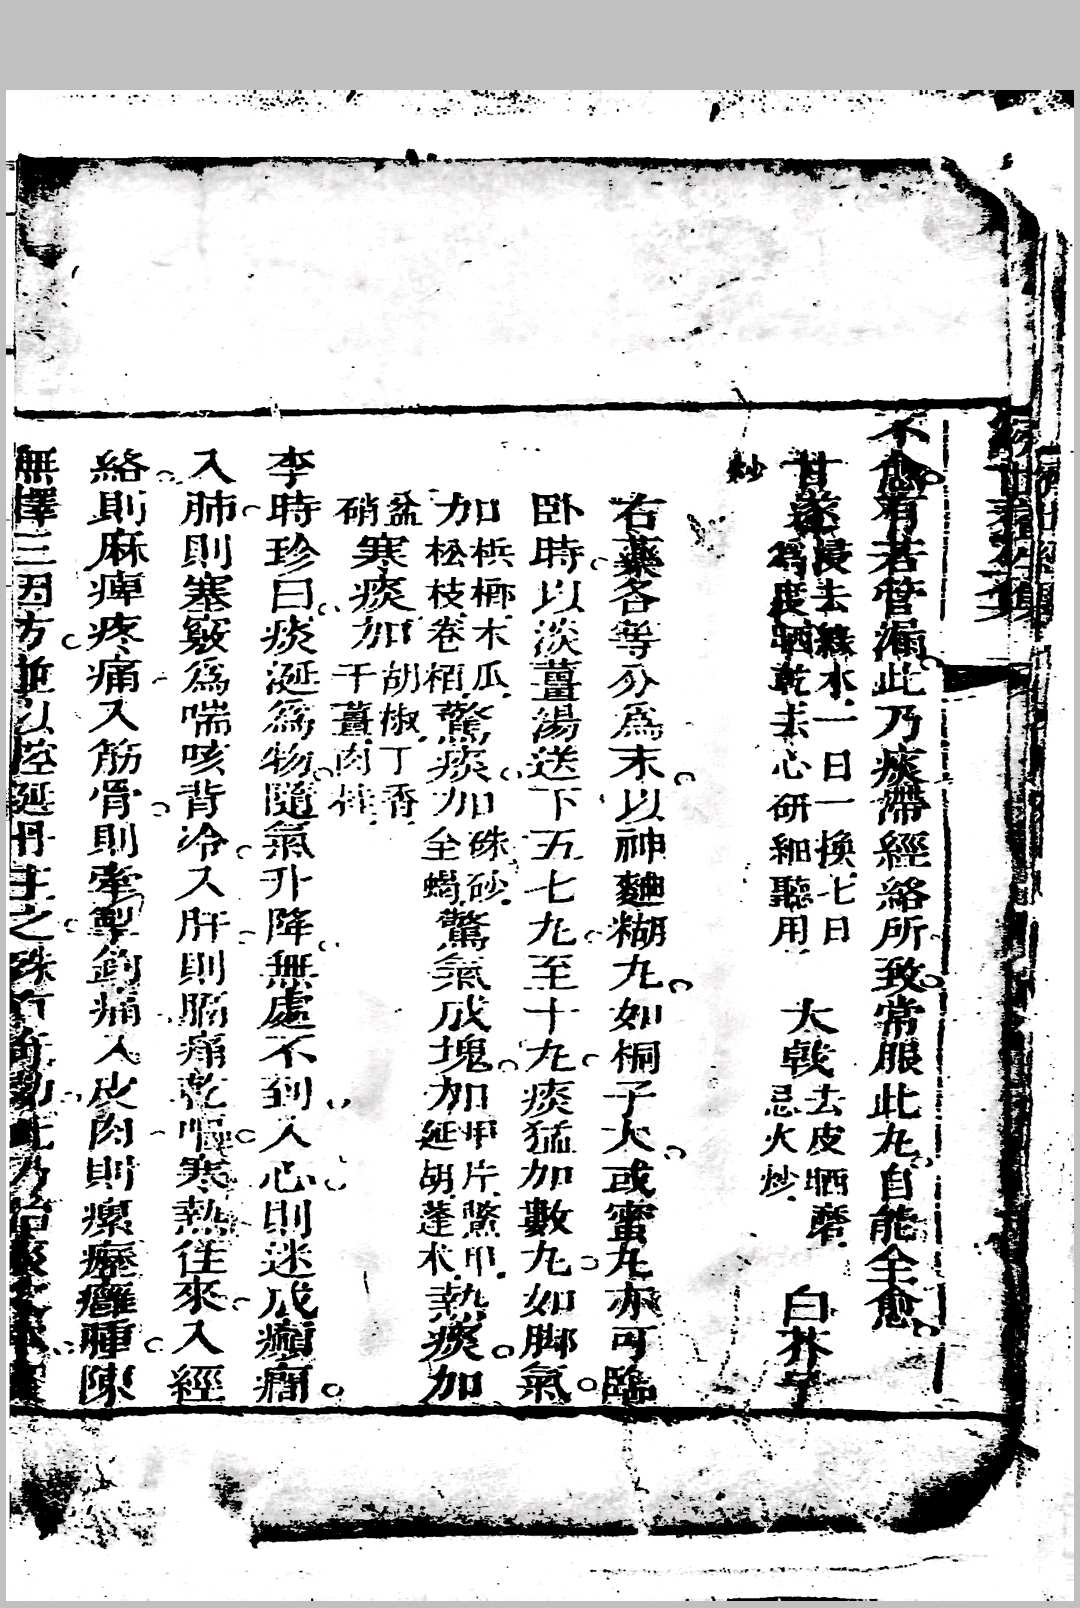 不愈者若管漏此乃痰滯經絡所致常服此丸自能全愈
甘遂浸去綠水一日一換七日
爲度晒乾去心研細聽用 大戟去皮晒磨
忌火炒 白芥子
炒
右藥各等分爲末以神麯糊丸如桐子大或蜜丸亦可臨
卧時以淡薑湯送下五七丸至十丸痰猛加數丸如脚氣
加梹榔木瓜
松枝卷栢驚痰加硃砂
全蝎驚氣成塊加甲片鱉甲
延胡蓬木熱痰加
盆
硝寒痰加胡椒丁香
干薑肉桂
李時珍曰痰涎爲物隨氣升降無處不到入心則迷成癲癇
入肺則塞竅爲喘咳背冷入肝則脇痛乾嘔寒熱徃來入經
絡則麻痺疼痛入筋骨則牽掣釣痛入皮肉則瘰癧癰腫陳
無擇三因方並以控涎丹主之殊有奇効此乃治痰之本